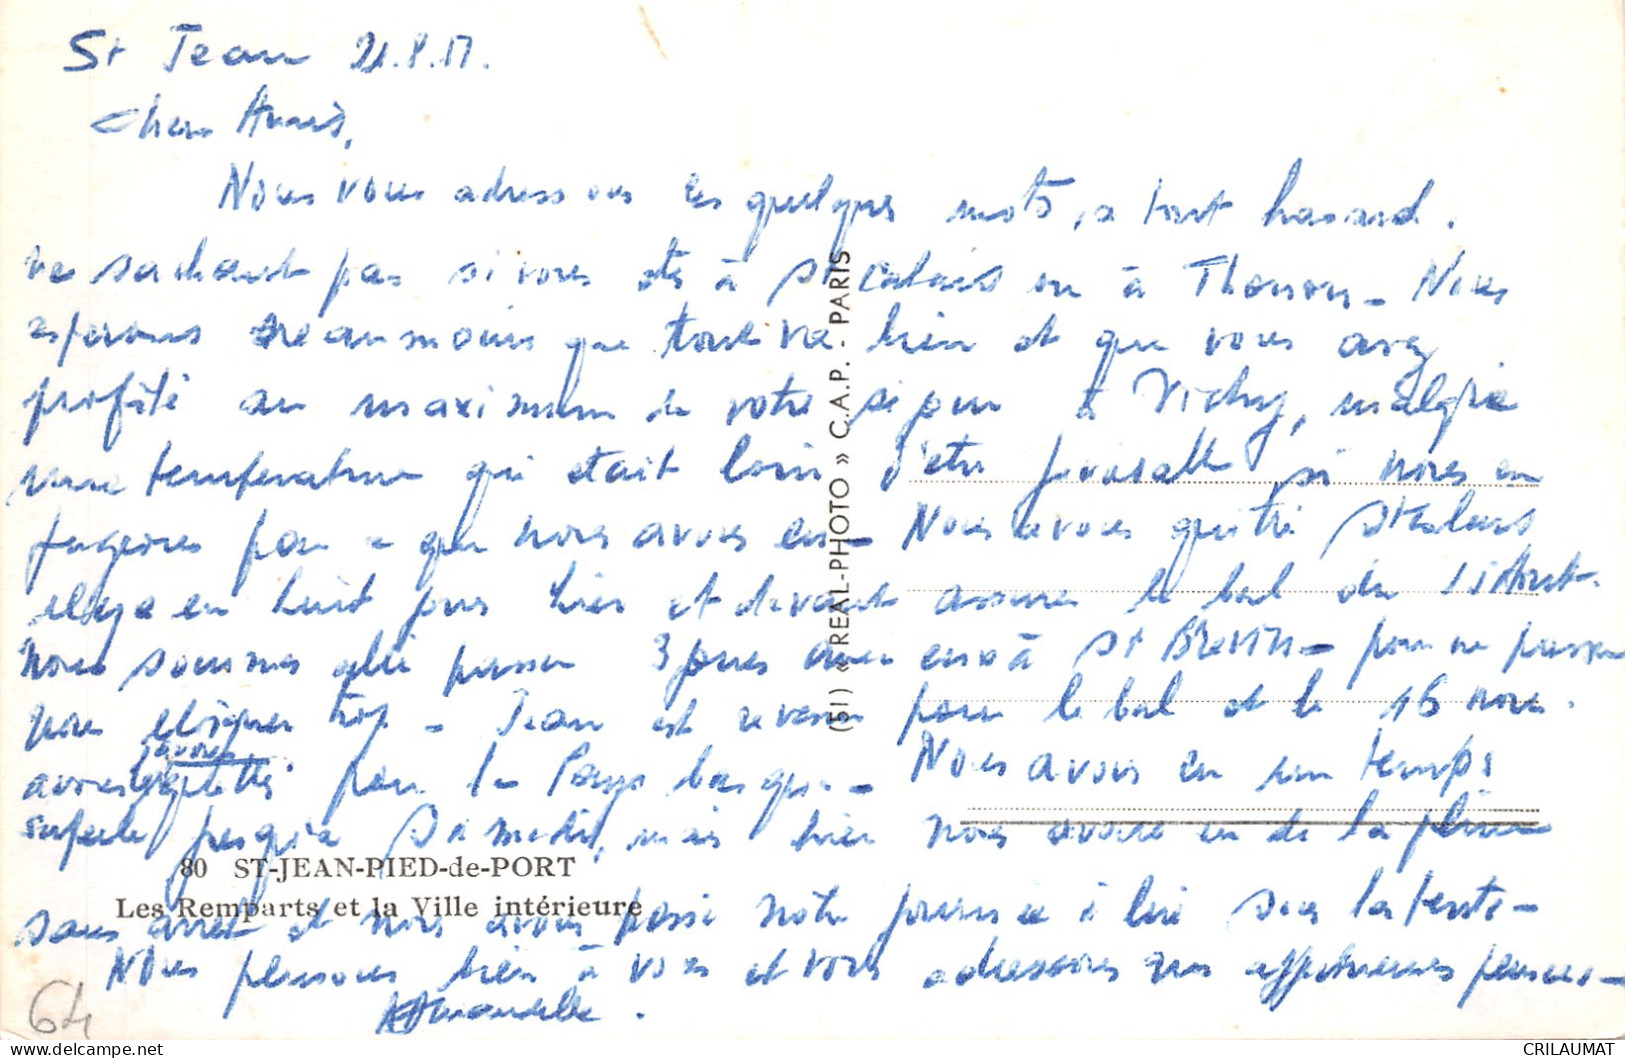 St Jean 21.8.57.
Chers Amis,
Nous vous adressons ces quelques mots, à tout hasard.
ne sachant pas si vous êtes à St Calais ou à Thonon - Nous
espérons néanmoins que tout va bien et que vous avez
profité au maximum de votre séjour à Vichy, malgré
une température qui était loin d'être favorable si nous en
jugeons par ce que nous avons eu - Nous avons quitté St Calais
en huit jours hier et devant assurer le bal du 15 Août -
Nous sommes allé passer 3 jours avec eux à St Brevin - pour ne pas
nous éloigner trop - Jean est revenu pour le bal et le 16 nous
avons quitté pour le Pays basque - Nous avons eu un temps
superbe jusqu'à Samedi, mais hier nous avons eu de la pluie
sans arrêt et nous avons passé notre journée à lire sous la tente -
Nous pensons bien à vous et vous adressons nos affectueuses pensées -
Amandelle.
80 ST-JEAN-PIED-de-PORT
Les Remparts et la Ville intérieure
(51) « REAL-PHOTO » C.A.P. - PARIS
64
CRILAUMAT